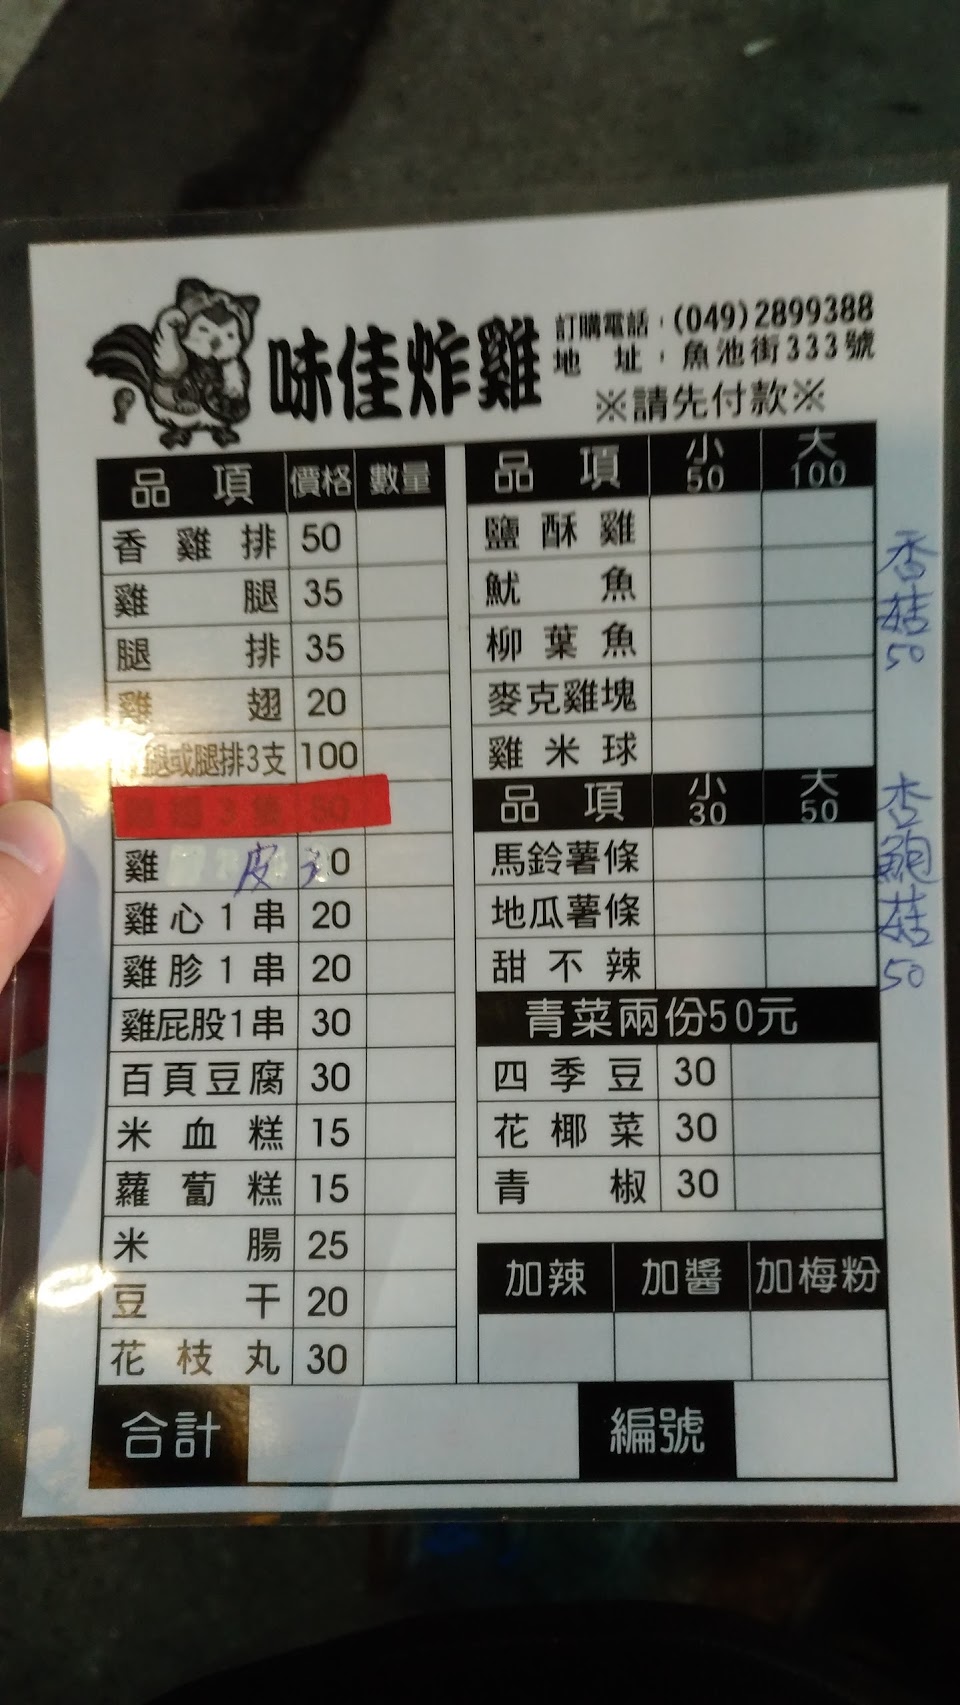 味佳炸雞
訂購電話：(049)2899388
地址：魚池街333號
※請先付款※
品項 價格 數量
香雞排 50
雞腿 35
腿排 35
雞翅 20
腿或腿排3支 100
雞皮 0
雞心1串 20
雞胗1串 20
雞屁股1串 30
百頁豆腐 30
米血糕 15
蘿蔔糕 15
米腸 25
豆干 20
花枝丸 30
品項 小50 大100
鹽酥雞
魷魚
柳葉魚
麥克雞塊
雞米球
品項 小30 大50
馬鈴薯條
地瓜薯條
甜不辣
青菜兩份50元
四季豆 30
花椰菜 30
青椒 30
加辣 加醬 加梅粉
合計 編號
香菇50
杏鮑菇50